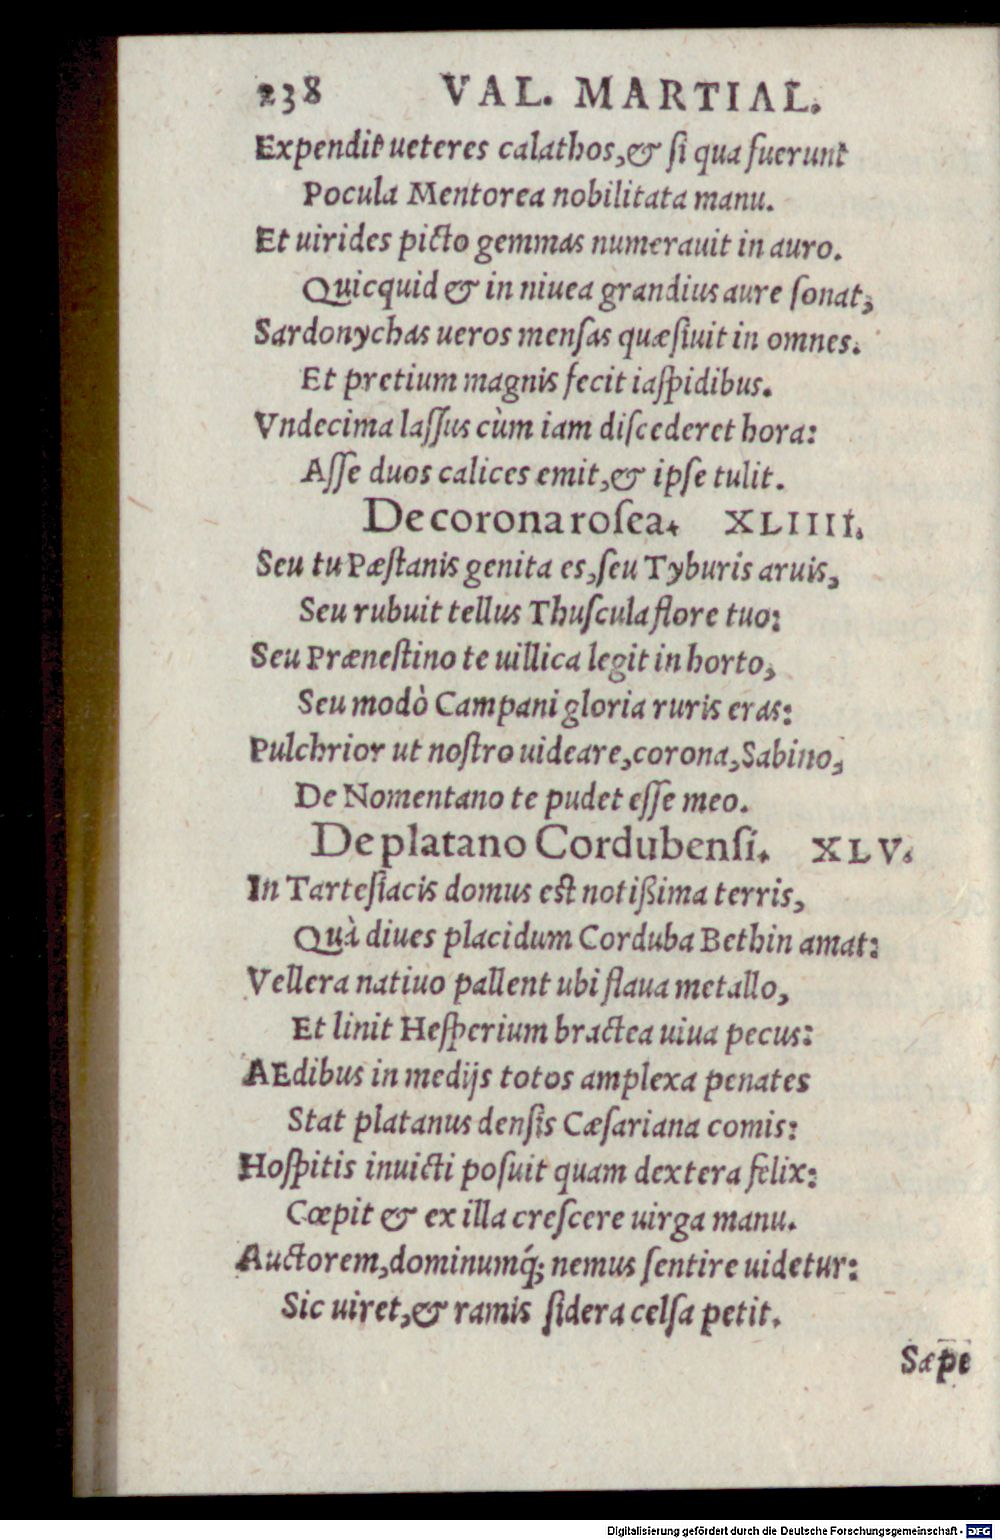 238 VAL. MARTIAL.
Expendit ueteres calathos,& ſi qua fuerunt
Pocula Mentorea nobilitata manu.
Et uirides picto gemmas numerauit in auro.
Quicquid & in niuea grandius aure ſonat;
Sardonychas ueros menſas quæſiuit in omnes.
Et pretium magnis fecit iaſpidibus.
Vndecima laſſus cùm iam diſcederet hora:
Aſſe duos calices emit,& ipſe tulit.
De corona roſea. XLIIII.
Seu tu Pæſtanis genita es,ſeu Tyburis aruis,
Seu rubuit tellus Thuſcula flore tuo:
Seu Præneſtino te uillica legit in horto,
Seu modò Campani gloria ruris eras:
Pulchrior ut noſtro uideare,corona,Sabino,
De Nomentano te pudet eſſe meo.
De platano Cordubenſi. XLV.
In Tarteſiacis domus eſt notißima terris,
Quà diues placidum Corduba Bethin amat:
Vellera natiuo pallent ubi flaua metallo,
Et linit Heſperium bractea uiua pecus:
AEdibus in medijs totos amplexa penates
Stat platanus denſis Cæſariana comis:
Hoſpitis inuicti poſuit quam dextera felix:
Cœpit & ex illa creſcere uirga manu.
Auctorem,dominumq́; nemus ſentire uidetur:
Sic uiret,& ramis ſidera celſa petit.
Sæpe
Digitalisierung gefördert durch die Deutsche Forschungsgemeinschaft - DFG